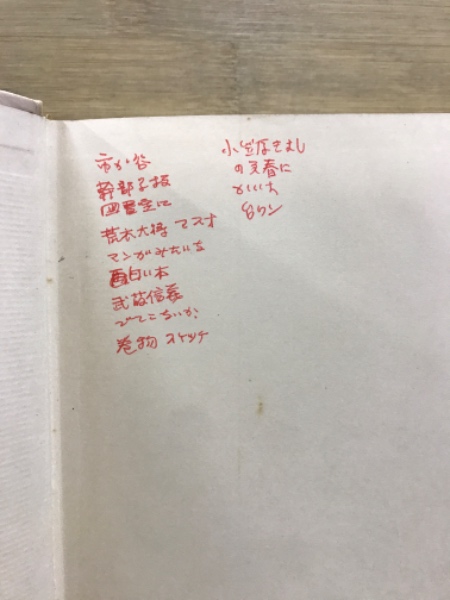 市か谷
幹部学校
図書室に
荒木大将 マスオ
マンがみたいな
面白い本
武藤信義
巻物 スケッチ
小笠原きよし
の文春に
かいた